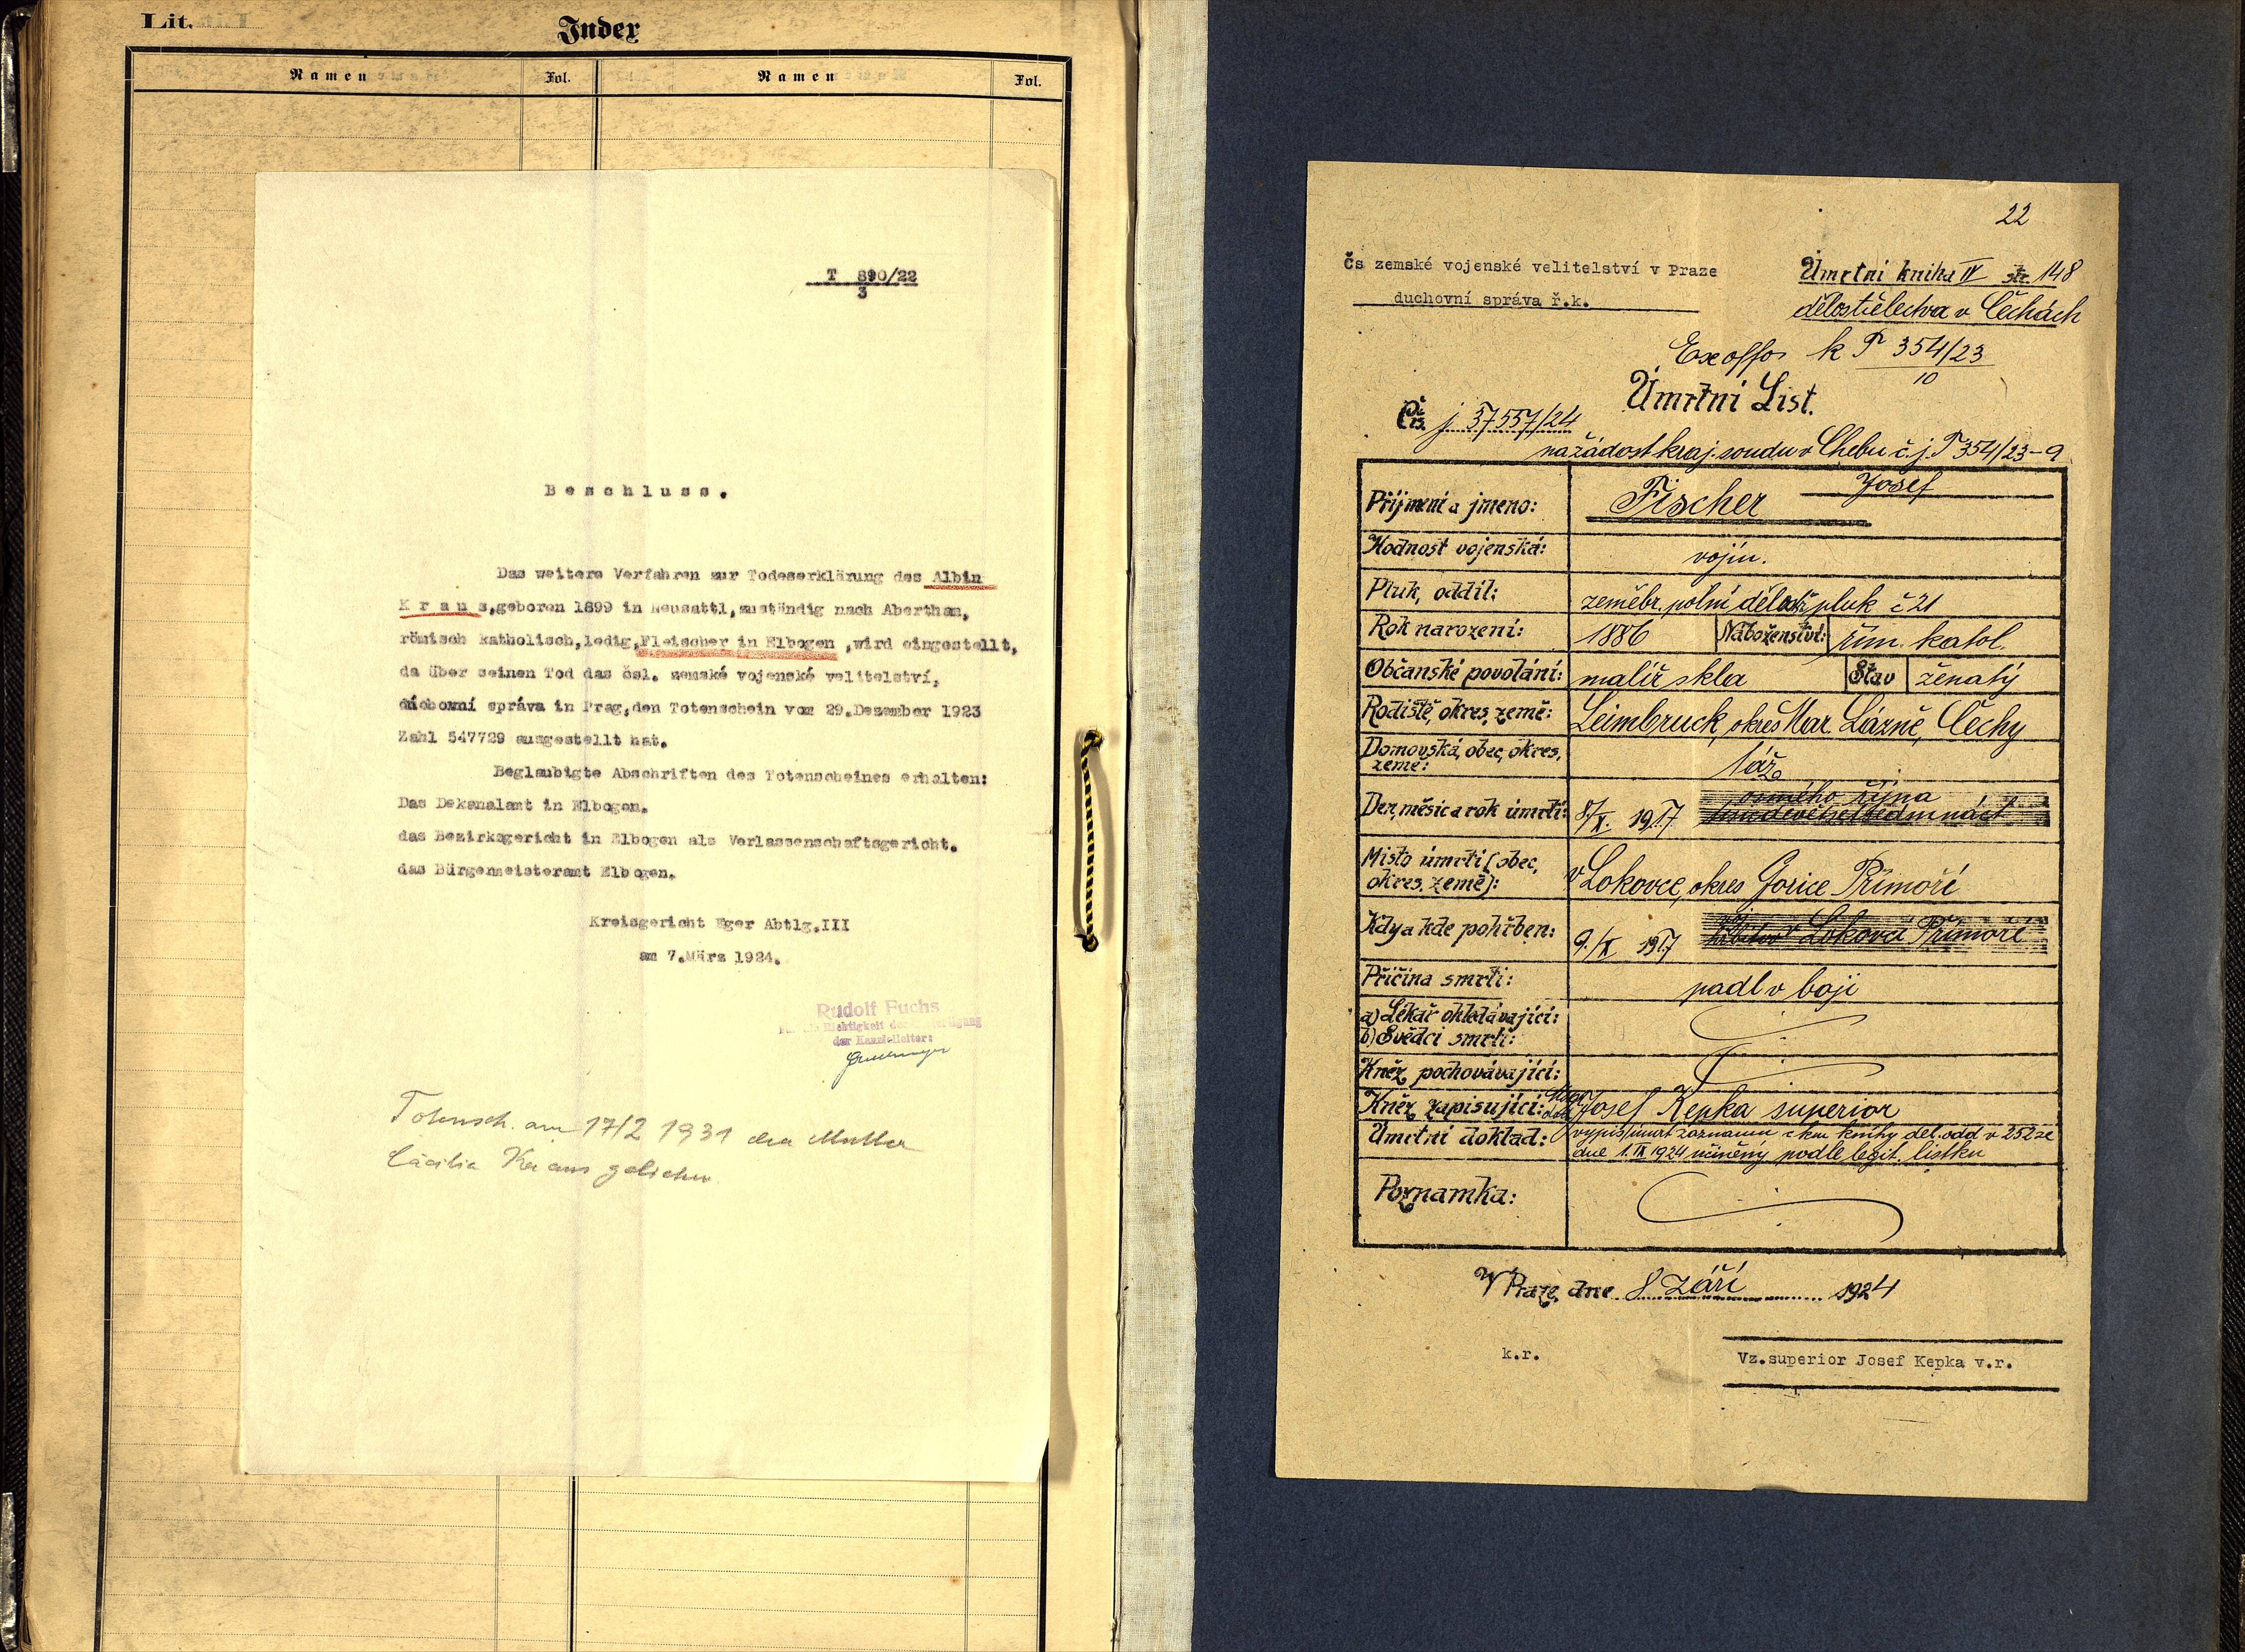 Lit.
Index
Namen Fol. Namen Fol.
T 890/22
3
Beschluss.
Das weitere Verfahren zur Todeserklärung des Albin
Kraus,geboren 1899 in Neusattl,zuständig nach Abertham,
römisch katholisch,ledig,Fleischer in Elbogen ,wird eingestellt,
da über seinen Tod das čsl. zemské vojenské velitelství,
duchovní správa in Prag,den Totenschein vom 29.Dezember 1923
Zahl 547729 ausgestellt hat.
Beglaubigte Abschriften des Totenscheines erhalten:
Das Dekanalamt in Elbogen.
das Bezirksgericht in Elbogen als Verlassenschaftsgericht.
das Bürgermeisteramt Elbogen.
Kreisgericht Eger Abtlg.III
am 7.März 1924.
Rudolf Fuchs
Richtigkeit der
der Kanzleileiter:
Totensch. am 17/2 1931 der Mutter
Cäcilia Kraus
22
Čs zemské vojenské velitelství v Praze
duchovní správa ř.k.
Úmrtní kniha IV str. 148
dělostřelectva v Čechách
Exoffo k T 354/23
10
Úmrtní List.
Čís. j 37557/24
na žádost kraj. soudu v Chebu č.j. T 354/23-9
Příjmení a jmeno: Fischer Josef
Hodnost vojenská: vojín.
Pluk, oddíl: zeměbr. polní děl. pluk č 21
Rok narození: 1886 Náboženství: řím. katol.
Občanské povolání: malíř skla Stav ženatý
Rodiště, okres, země: Leimbruck, okres Mar. Lázně, Čechy
Domovská, obec, okres, země: táž
Den, měsíc a rok úmrtí: 8/X. 1917 osmého října
Místo úmrtí (obec, okres. země): v Lokovce, okres Gorice Přímoří
Kdy a kde pohřben: 9./X 1917 v Lokovci Přímoří
Příčina smrti: padl v boji
a) Lékař ohledávající:
b) Svědci smrti:
Kněz pochovávající:
Kněz zapisující: Josef Kepka superior
Úmrtní doklad: výpis úmrt záznamu z km. knihy děl. odd v 252 ze
dne 1.IX 1924 učiněný podle legit. lístku
Poznamka:
V Praze, dne 8 září 1924
k.r.
Vz.superior Josef Kepka v.r.